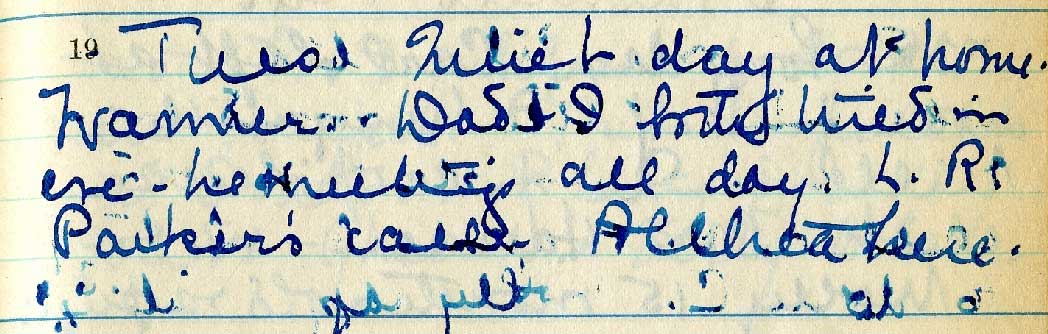 19 Tues. Quiet day at home.
Warmer. Dad & I both tired in
eve. - he all day. L. R.
Parkers call. here.